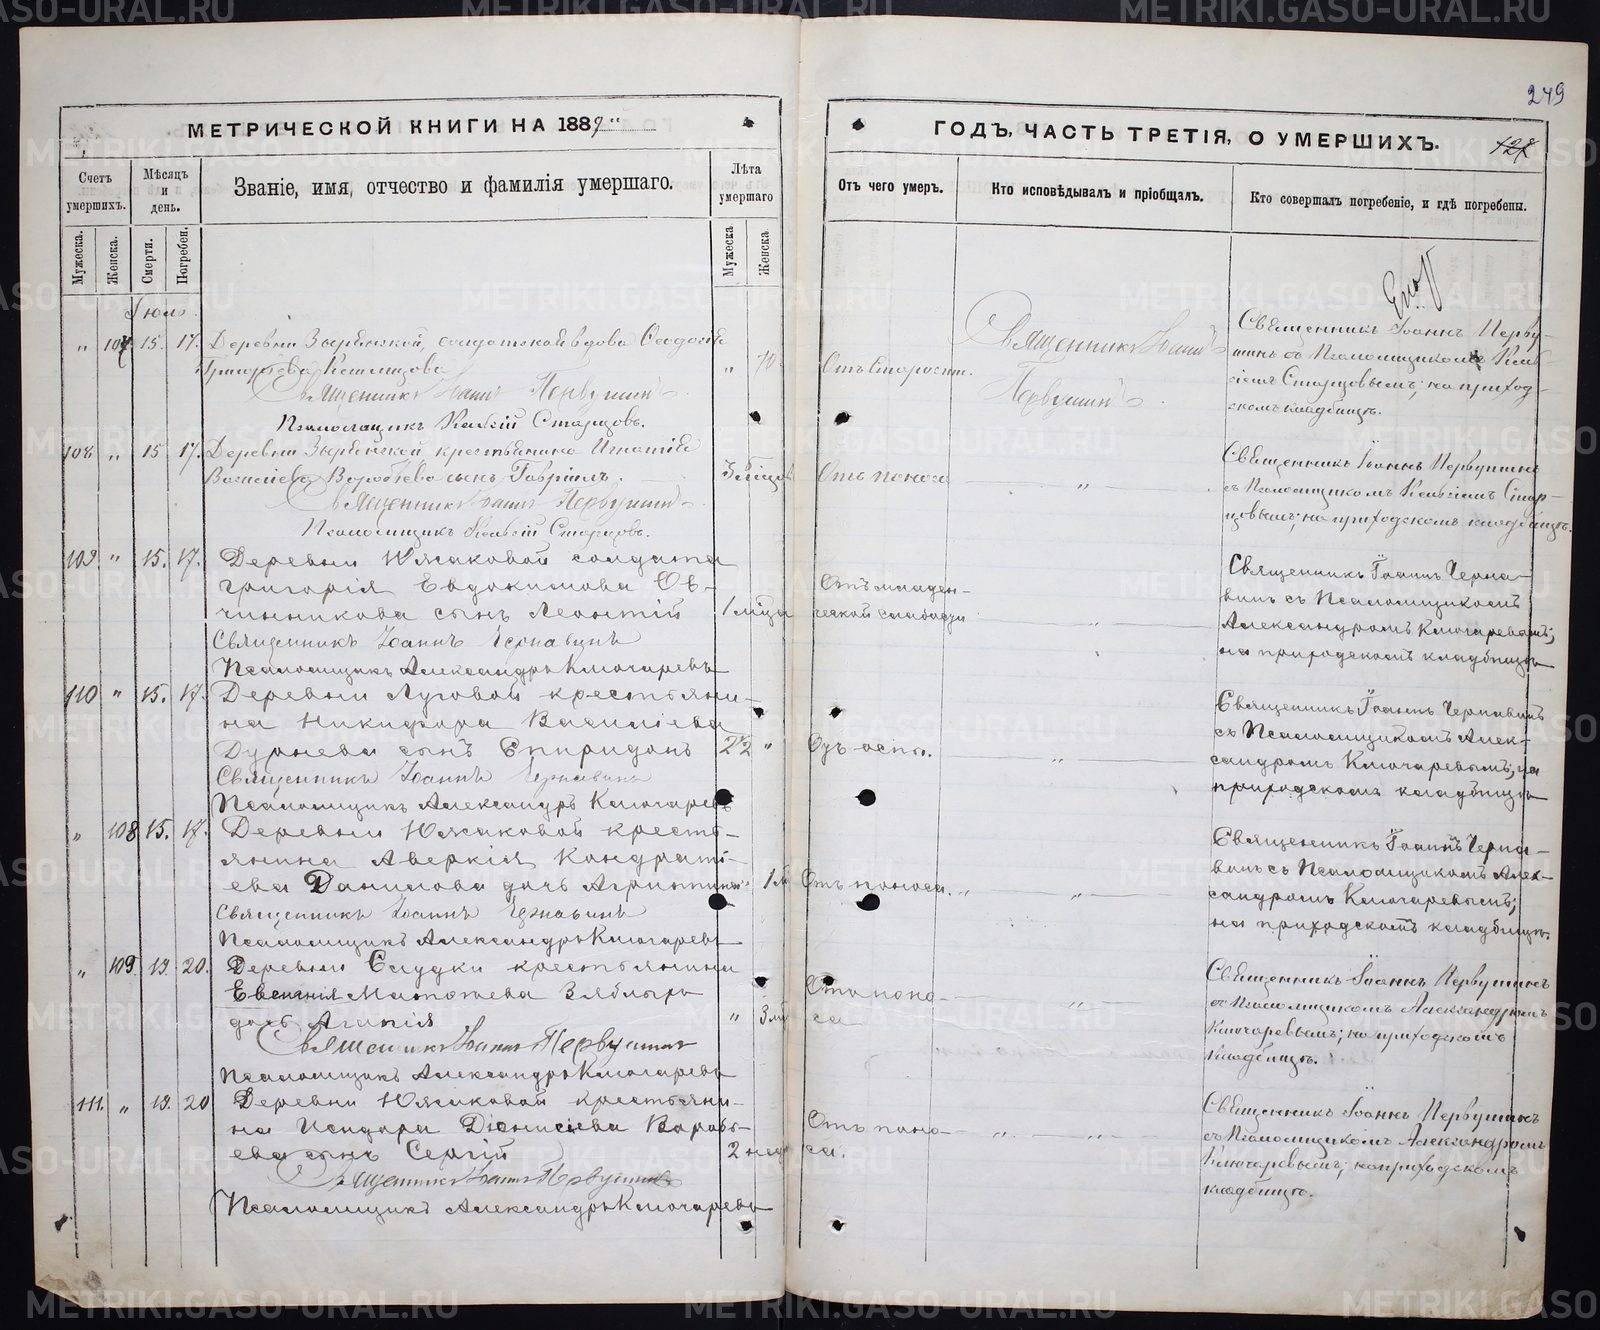 249
МЕТРИЧЕСКОЙ КНИГИ НА 1887
ГОДЪ, ЧАСТЬ ТРЕТІЯ, О УМЕРШИХЪ.
Счетъ умершихъ.
Мѣсяцъ и день.
Званіе, имя, отчество и фамилія умершаго.
Лѣта умершаго
Отъ чего умеръ.
Кто исповѣдывалъ и пріобщалъ.
Кто совершалъ погребеніе, и гдѣ погребены.
Мужеска.
Женска.
Смерти.
Погребен.
Мужеска
Женска.
Іюль.
" 107 15. 17. Деревни солдатская вдова Ѳеодосія
Григорьева
" 70 Отъ старости.
Священникъ Іоаннъ Первушинъ
Псаломщикъ Старцовъ.
Священникъ Іоаннъ
Первушинъ
Священникъ Іоаннъ Перву-
шинъ съ Псаломщикомъ
Старцовымъ; на приход-
скомъ кладбищѣ.
108 " 15 17. Деревни крестьянина Игнатія
Васильева Воробьева сынъ Гавріилъ.
Отъ поноса
Священникъ Іоаннъ Первушинъ
Псаломщикъ Старцовъ.
Священникъ Іоаннъ Первушинъ
съ Псаломщикомъ Стар-
цовымъ; на приходскомъ кладбищѣ.
109 " 15. 17. Деревни Южаковой солдата
Григорія Евдокимова Ов-
чинникова сынъ Леонтій
Отъ младен-
ческой слабости
Священникъ Іоаннъ Чернавинъ
Псаломщикъ Александръ Ключаревъ
Священникъ Іоаннъ Черна-
винъ съ Псаломщикомъ
Александромъ Ключаревымъ;
на приходскомъ кладбищѣ
110 " 15. 17. Деревни Луговой крестьяни-
на Никифора Васильева
Дурнева сынъ Спиридонъ
" Отъ оспы.
Священникъ Іоаннъ Чернавинъ
Псаломщикъ Александръ Ключаревъ
Священникъ Іоаннъ Чернавинъ
съ Псаломщикомъ Алек-
сандромъ Ключаревымъ; на
приходскомъ кладбищѣ
" 108 15. 17. Деревни Южаковой кресть-
янина Аверкія Кондрать-
ева Данилова дочь Агриппина
Отъ поноса.
Священникъ Іоаннъ Чернавинъ
Псаломщикъ Александръ Ключаревъ
Священникъ Іоаннъ Черна-
винъ съ Псаломщикомъ Алек-
сандромъ Ключаревымъ;
на приходскомъ кладбищѣ.
" 109. 19. 20. Деревни Слудки крестьянина
Евгенія
дочь Агапія
" Отъ поно-
са
Священникъ Іоаннъ Первушинъ
Псаломщикъ Александръ Ключаревъ
Священникъ Іоаннъ Первушинъ
съ Псаломщикомъ Александромъ
Ключаревымъ; на приходскомъ
кладбищѣ.
111. " 19. 20 Деревни Южаковой крестьяни-
на Исидора Діонисіева Воробь-
ева сынъ Сергій
2 нед Отъ поно-
са.
Священникъ Іоаннъ Первушинъ
Псаломщикъ Александръ Ключаревъ
Священникъ Іоаннъ Первушинъ
съ Псаломщикомъ Александромъ
Ключаревымъ; на приходскомъ
кладбищѣ.
METRIKI.GASO-URAL.RU